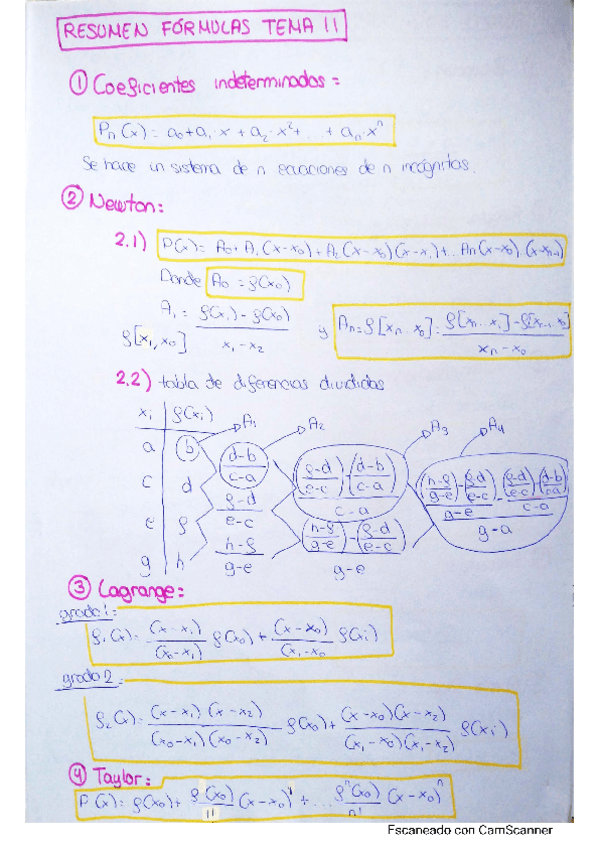 RESUMEN FÓRMULAS TEMA 11
① Coeficientes indeterminados:
Pn(x) = a0+a1·x + a2·x²+...+ an·xⁿ
Se hace un sistema de n ecuaciones de n incógnitas.
② Newton:
2.1) P(x) = A0+A1(x-x0)+A2(x-x0)(x-x1)+...An(x-x0)..(x-xn-1)
Donde A0 = f(x0)
A1 = f(x1) - f(x0) / x1-x2
f[x1,x0]
y An=f[xn..x0]= f[xn..x1]-f[xn-1..x0] / xn-x0
2.2) tabla de diferencias divididas
xi f(xi) A1 A2 A3 A4
a b
c d
e f
g h
d-b / c-a
f-d / e-c
h-f / g-e
(f-d / e-c)-(d-b / c-a) / c-a
(h-f / g-e)-(f-d / e-c) / g-e
(h-f / g-e)-(f-d / e-c) / g-e - (f-d / e-c)-(d-b / c-a) / c-a / g-a
③ Lagrange:
grado 1:
f1(x)= (x-x1) / (x0-x1) f(x0) + (x-x0) / (x1-x0 f(xi)
grado 2:
f2(x)= (x-x1)(x-x2) / (x0-x1)(x0-x2) f(x0)+ (x-x0)(x-x2) / (x1-x0)(x1-x2) f(xi)
④ Taylor:
P(x)= f(x0)+ f(x0) / 1! (x-x0)¹+... fⁿ(x0) / n! (x-x0)ⁿ
Escaneado con CamScanner